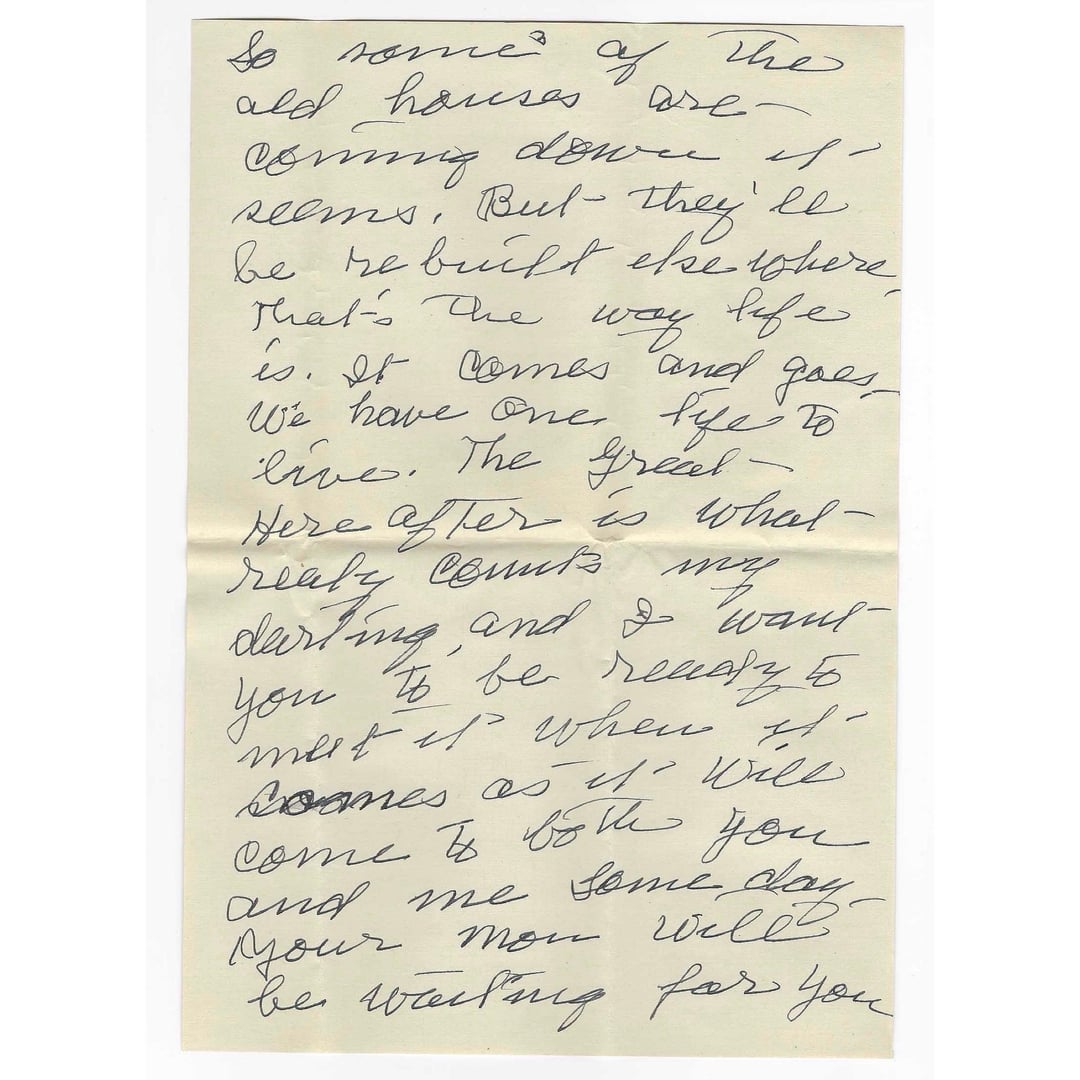 So some of the
old houses are
coming down it
seems. But they'll
be rebuilt elsewhere
that's the way life
is. It comes and goes.
We have one life to
live. The Great
Here after is what
realy counts my
darling, and I want
you to be ready to
meet it when it
comes as it will
come to both you
and me some day.
Your mom will
be waiting for you